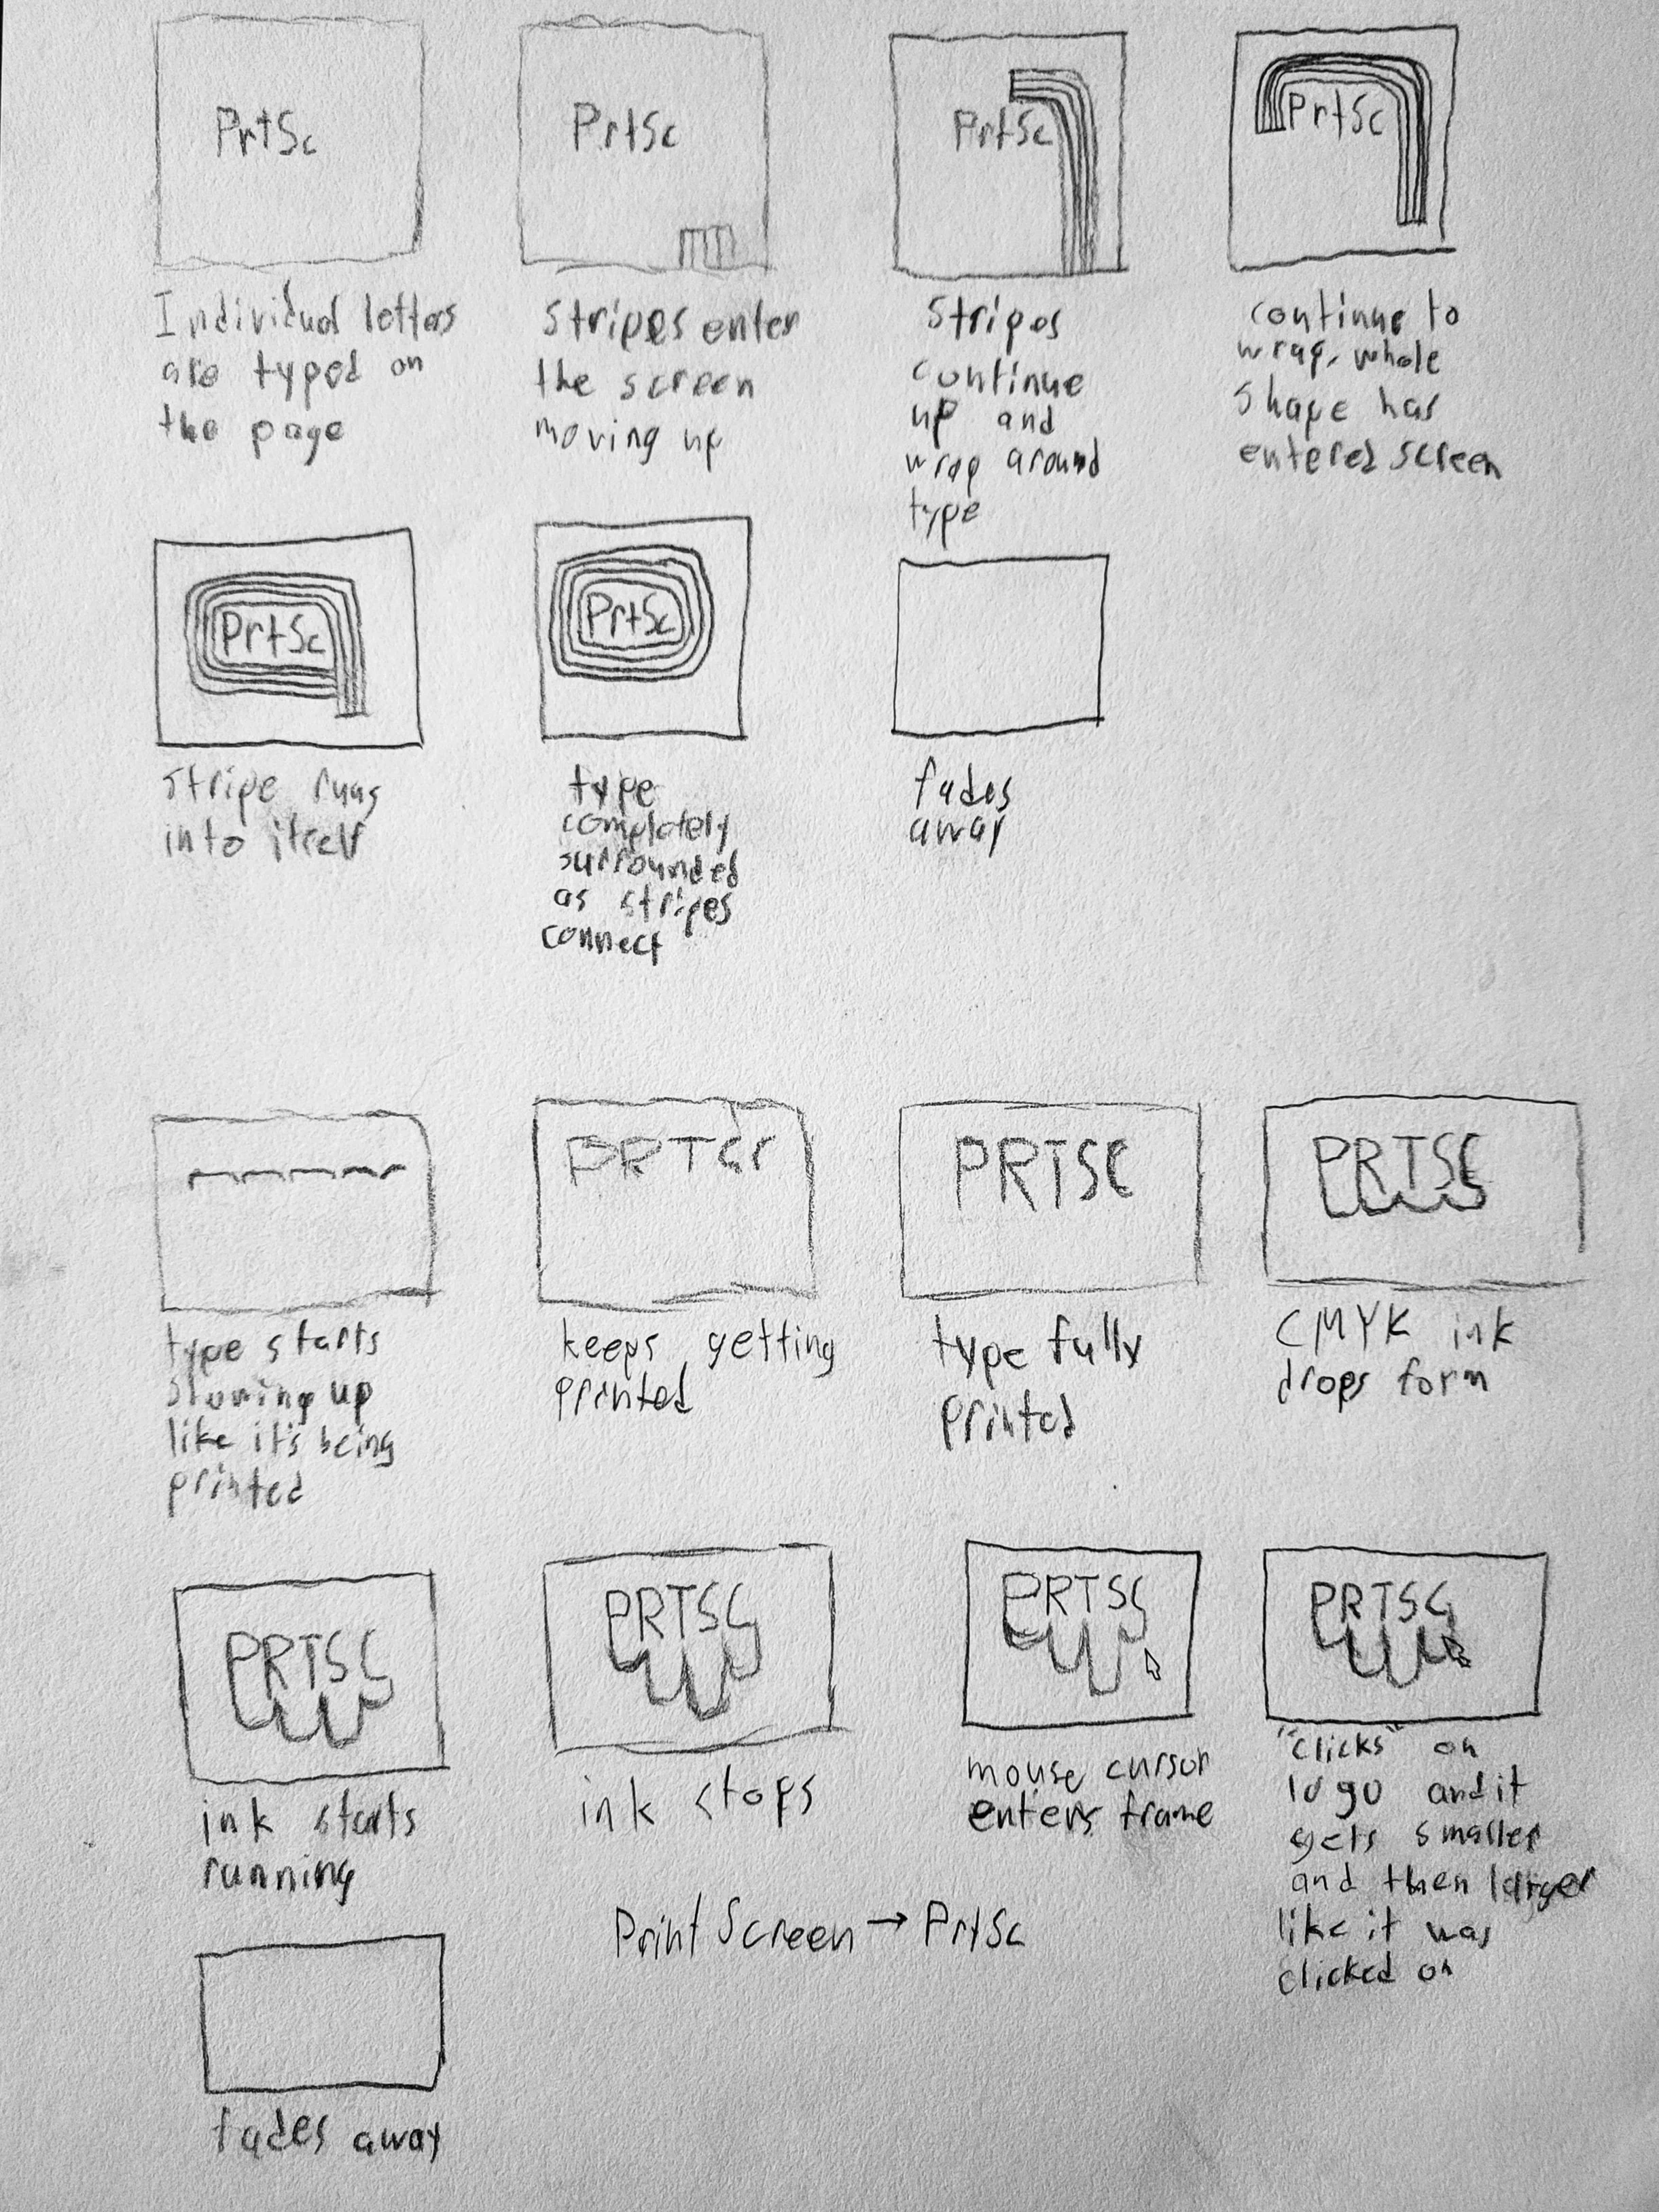 PrtSc
Individual letters
are typed on
the page
PrtSc
Stripes enter
the screen
moving up
PrtSc
Stripes
continue
up and
wrap around
type
PrtSc
continue to
wrap, whole
shape has
entered screen
PrtSc
stripe runs
into itself
PrtSc
type
completely
surrounded
as stripes
connect
fades
away
type starts
showing up
like it's being
printed
PRTSC
keeps getting
printed
PRTSC
type fully
printed
PRTSC
CMYK ink
drops form
PRTSC
ink starts
running
PRTSC
ink stops
PRTSC
mouse cursor
enters frame
PRTSC
"clicks" on
logo and it
gets smaller
and then larger
like it was
clicked on
Print Screen → PrtSc
fades away